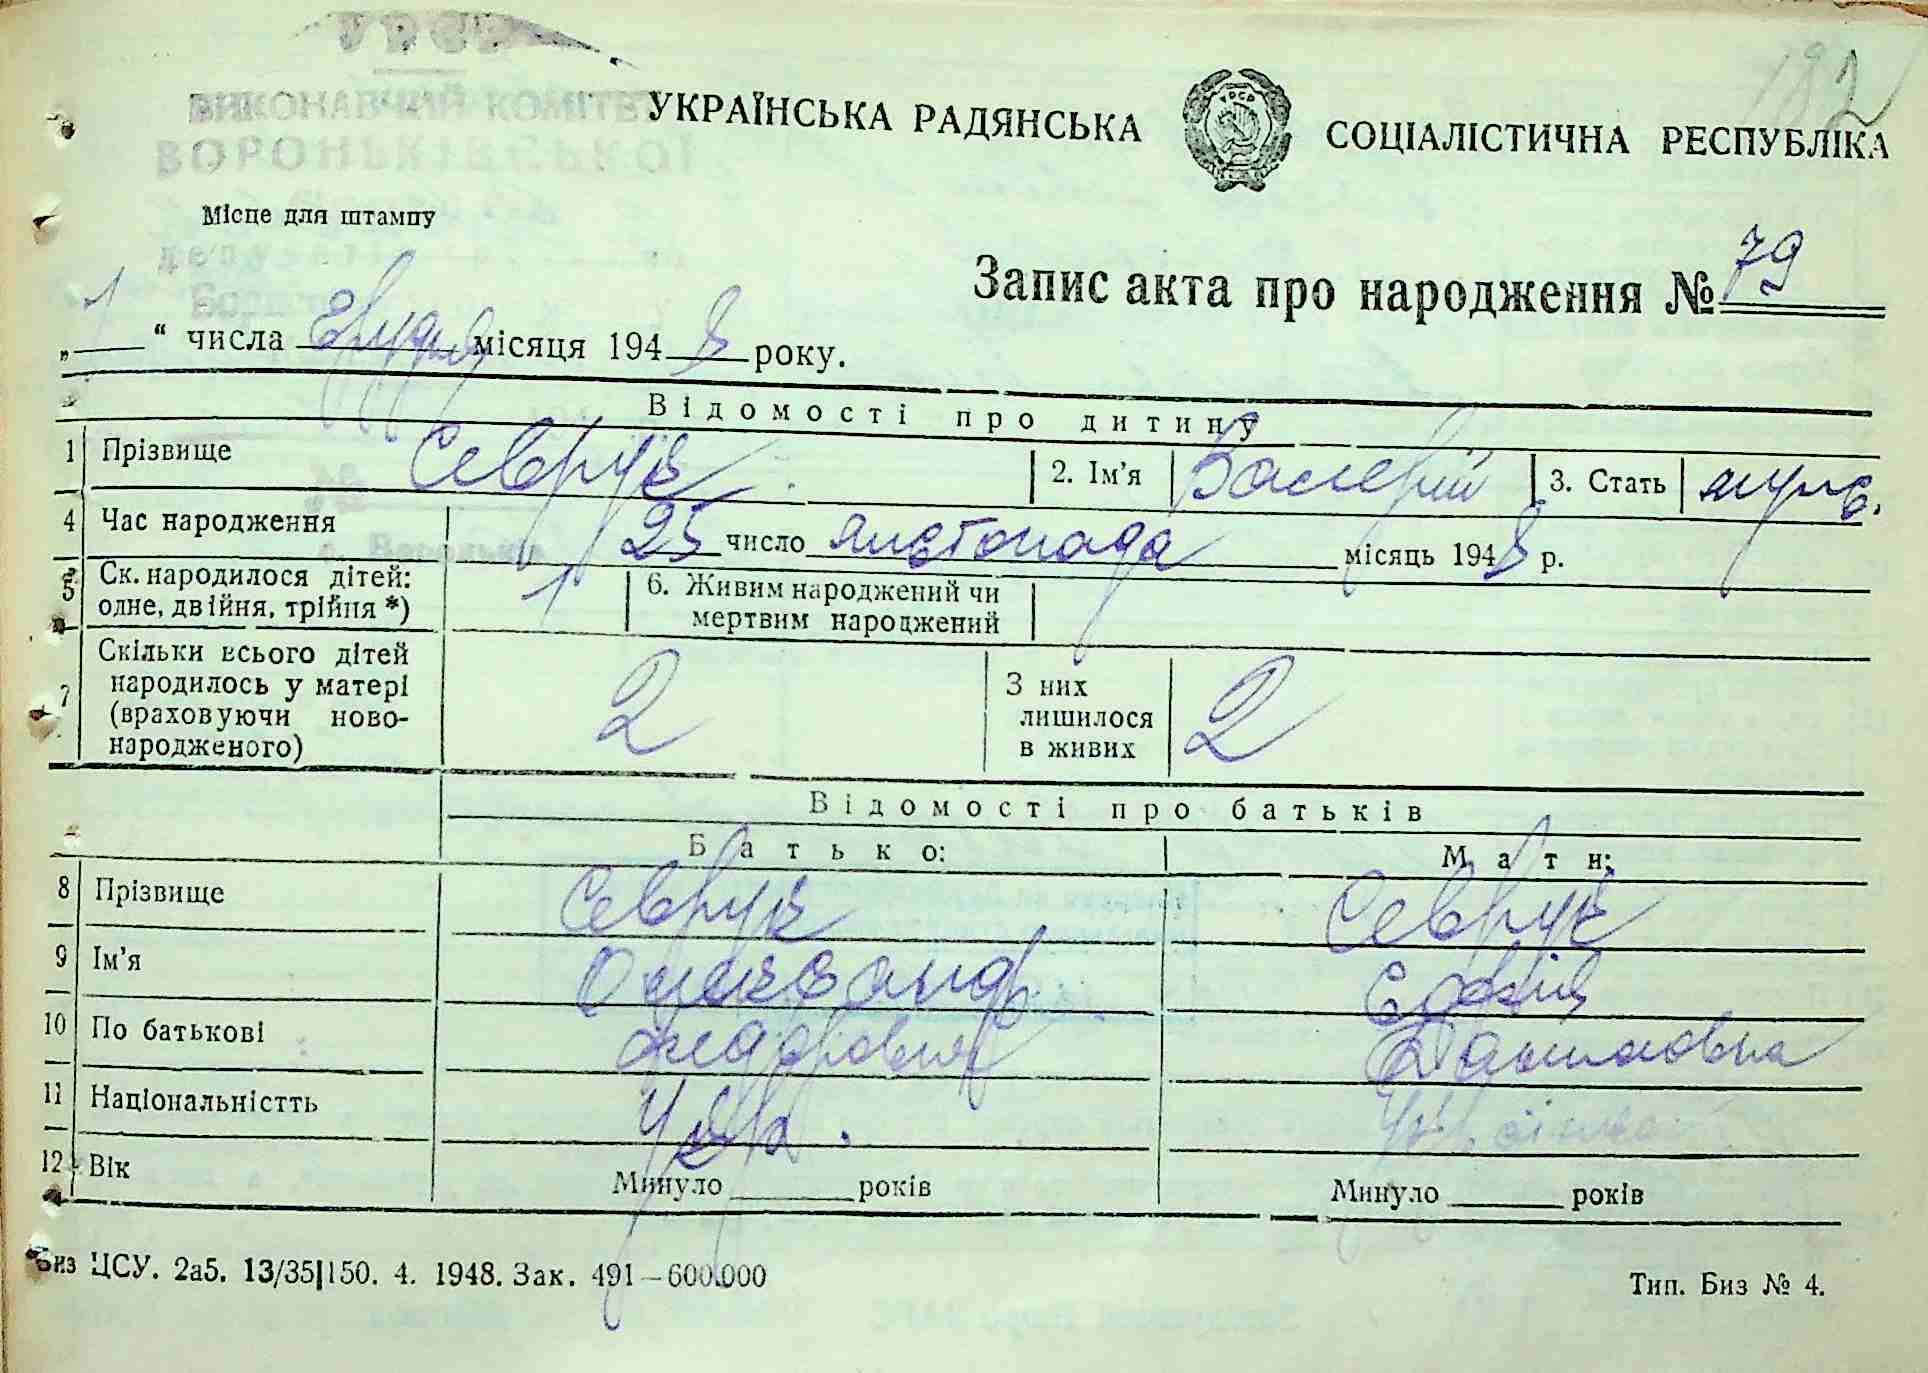 УРСР
182
ВИКОНАВЧИЙ КОМІТЕТ
ВОРОНЬКІВСЬКОЇ
УКРАЇНСЬКА РАДЯНСЬКА СОЦІАЛІСТИЧНА РЕСПУБЛІКА
Місце для штампу
Запис акта про народження № 79
„ 1 “ числа Грудня місяця 1948 року.
Відомості про дитину
1 Прізвище Севрук 2. Ім'я Валерій 3. Стать муж.
4 Час народження 25 число листопада місяць 1948 р.
5 Ск. народилося дітей: одне, двійня, трійня *) 1 6. Живим народжений чи мертвим народжений
7 Скільки всього дітей народилось у матері (враховуючи ново-народженого) 2 З них лишилося в живих 2
Відомості про батьків
Батько: Мати:
8 Прізвище Севрук Севрук
9 Ім'я Олександр Софія
10 По батькові Даниловна
11 Національністть Укр.
12 Вік Минуло років Минуло років
Биз ЦСУ. 2а5. 13/35|150. 4. 1948. Зак. 491—600.000
Тип. Биз № 4.